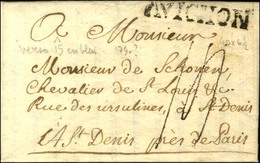 AVIGNON
A Monsieur
Monsieur de Schonen,
Chevalier de St Louis &c
Rue des ursulines, a St Denis
A St Denis près de Paris